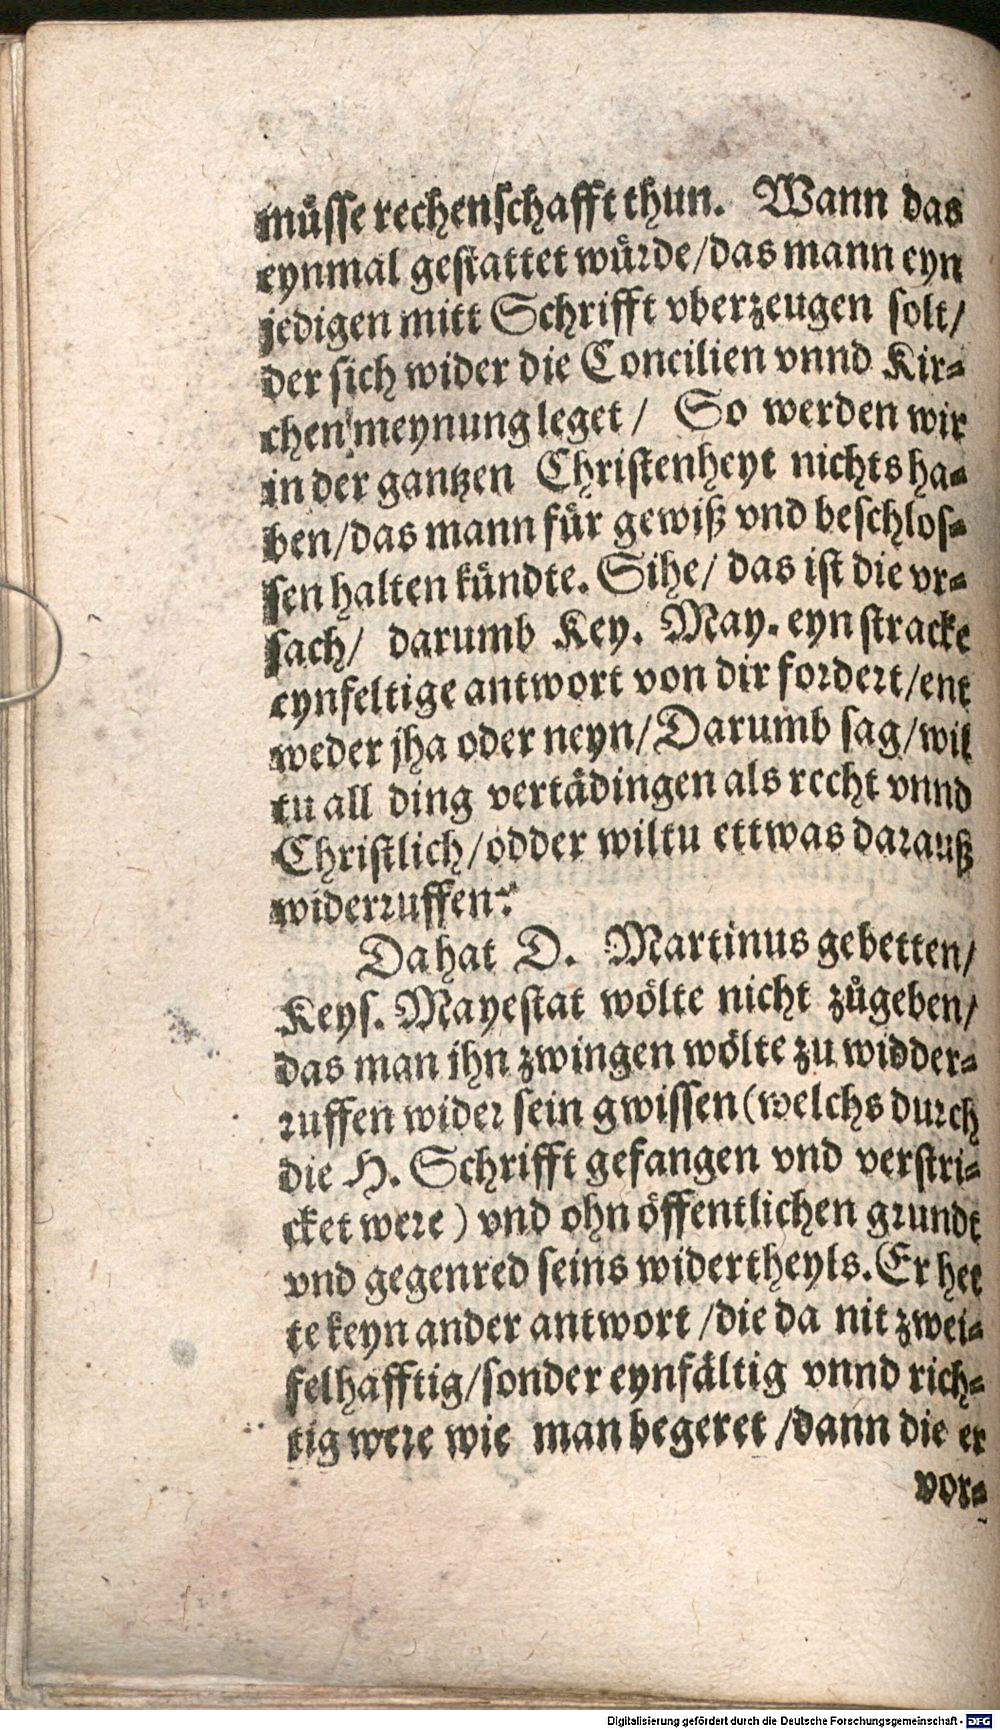 müsse rechenschafft thun. Wann das
eynmal gestattet würde/das mann eyn
jedigen mitt Schrifft vberzeugen solt/
der sich wider die Concilien vnnd Kir-
chen meynung leget / So werden wir
in der gantzen Christenheyt nichts ha-
ben/das mann für gewiß vnd beschlos-
sen halten kündte. Sihe/ das ist die vr-
sach/ darumb Key. May. eyn stracke
eynfeltige antwort von dir fordert/ent
weder jha oder neyn/Darumb sag/wil
tu all ding vertädingen als recht vnnd
Christlich/odder wiltu ettwas darauß
widerruffen?
Da hat D. Martinus gebetten/
Keys. Mayestat wölte nicht zůgeben/
das man ihn zwingen wölte zu widder-
ruffen wider sein gwissen (welchs durch
die H. Schrifft gefangen vnd verstri-
cket were) vnd ohn öffentlichen grundt
vnd gegenred seins widertheyls. Er het
te keyn ander antwort /die da nit zwei-
felhafftig/sonder eynfältig vnnd rich-
tig were wie man begeret /dann die er
vor-
Digitalisierung gefördert durch die Deutsche Forschungsgemeinschaft - DFG